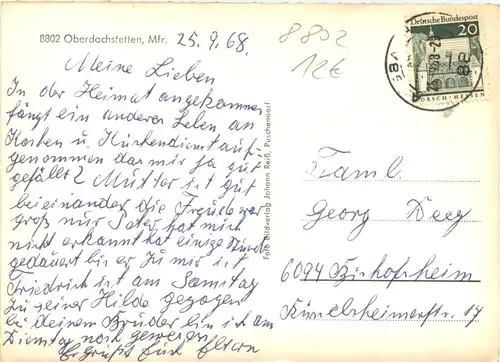 8802 Oberdachstetten, Mfr.
25.9.68.
8802
12€
Deutsche Bundespost
20
LORSCH · HESSEN
Meine Lieben
In der Heimat angekommen
fängt ein anderes Leben an
Kochen u. Küchendienst auf-
genommen das mir ja gut
gefällt? Mutter ist gut
beieinander die Freude war
groß nur Vater hat mich
nicht erkannt hat einige Stunde
gedauert bis er zu mir ist
Friedrich ist am Samstag
zu seiner Hilde gezogen
bei deinem Bruder bin ich am
Dienstag noch gewesen
Es grüßt Eltern
Foto Bildverlag Johann Reiß, Puschendorf
Faml.
Georg Deeg
6094 Bischofsheim
Rüsselsheimerstr. 17